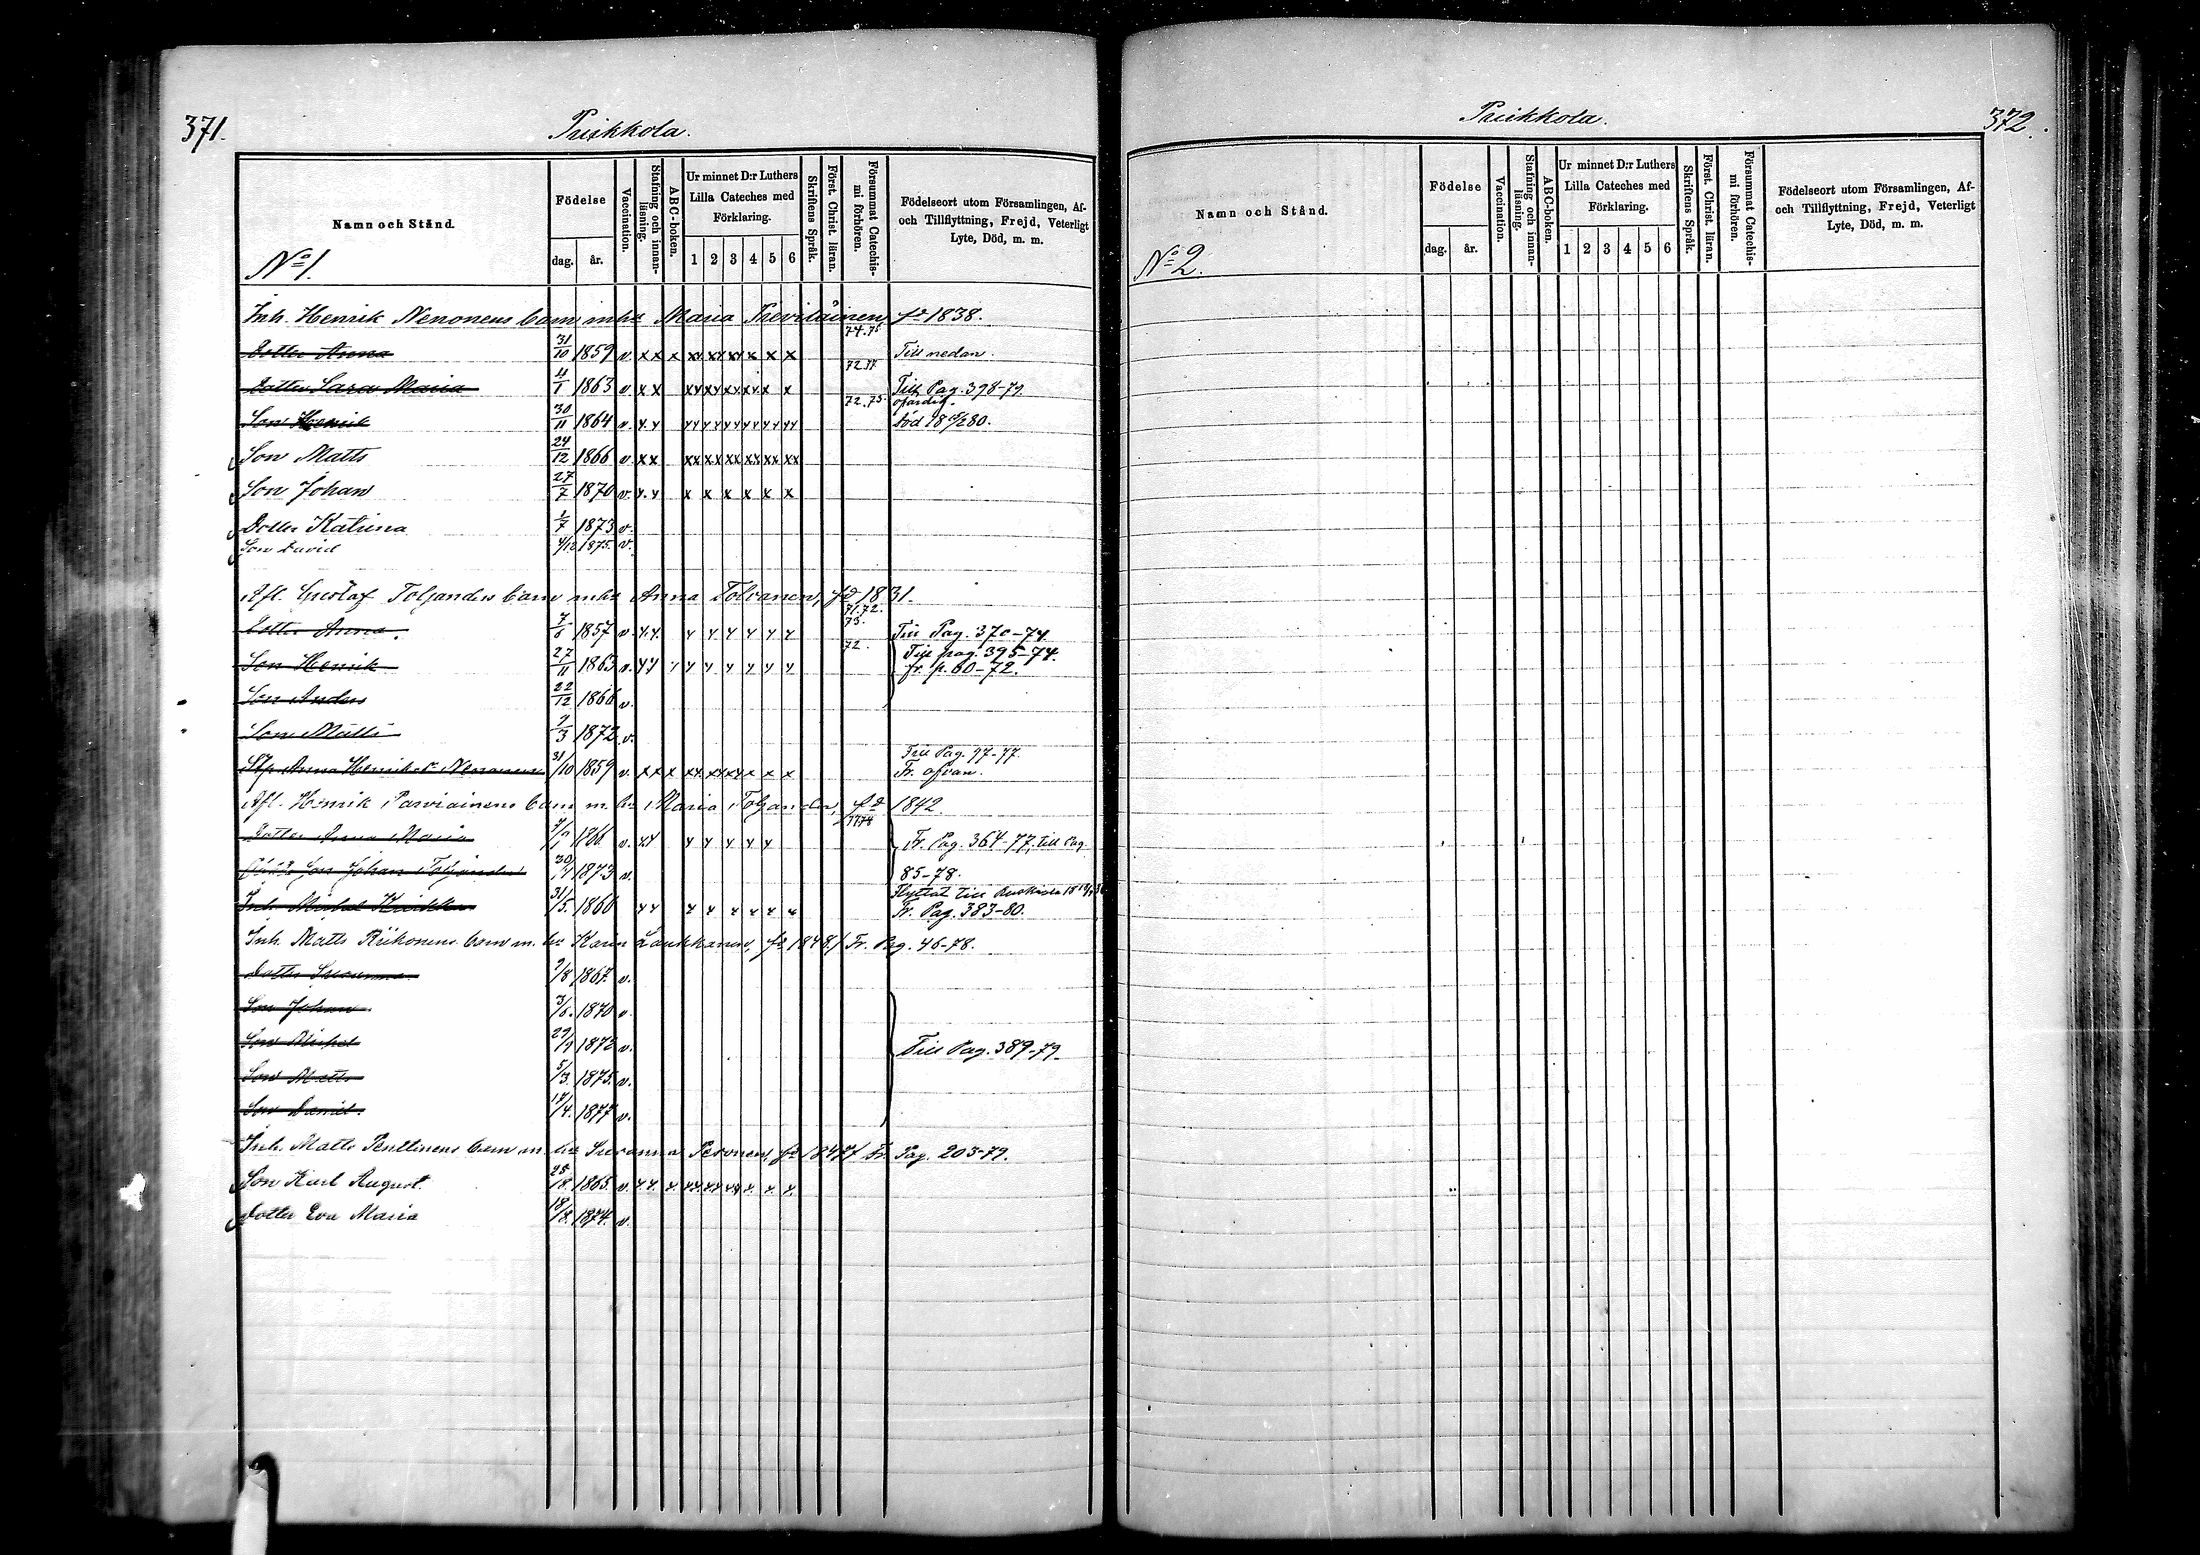 371.
Puikkola.
Namn och Stånd.
Födelse
dag.
år.
Vaccination.
Stafning och innanläsning.
ABC-boken.
Ur minnet D:r Luthers
Lilla Cateches med
Förklaring.
1 2 3 4 5 6
Skriftens Språk.
Först. Christ. läran.
Försummat Catechismi förhören.
Födelseort utom Församlingen, Af-
och Tillflyttning, Frejd, Veterligt
Lyte, Död, m. m.
No 1.
Inh. Henrik Nenonens barn m. hu Maria fd 1838.
Dotter Anna 31/10 1859 v. x x x xx xx xx x x x 74.75 Till nedan.
Dotter Sara Maria 4/1 1863 v x x 72.77 Till Pag. 398-79.
Son Henrik 30/11 1864 v. 72.75. ofärdig. död 80.
Son Matts 24/12 1866 v. xx xx xx xx xx xx xx
Son Johan 27/7 1870 v. x x x x x x
Dotter Katrina 1/7 1873 v.
Son David 4/12 1875. v.
Afl. Gustaf Toljanders barn m hu Anna Tolvanen, fd 1831.
Dotter Anna. 1857 v. 71.72. 73. Till Pag. 370-74
Son Henrik 27/11 1863 v. 72. Till pag. 395-74.
fr. p. 60-72.
Son Anders 22/12 1866 v.
Son Matti 9/3 1872 v.
Anna Henriks dr Nenonen 31/10 1859 v. x x x xx xx xx x x x Till Pag. 97-77.
Fr. ofvan.
Afl. Henrik Parviainens barn m. hu Maria Toljander, fd 1842.
Dotter Anna Maria 1866 v. 77.78 Fr. Pag. 364-77, till Pag.
Son Johan Toljander 1873 v. 85-78.
Inh. Michel 31/5. 1860 Flyttat till
Fr. Pag. 383-80.
Inh. Matts Riikonens barn m. hu Karin Laukkanen, fd 1848./ Fr. Pag. 46-78.
Dotter Susanna 9/8 1867. v.
Son Johan 3/6. 1870 v.
Son Michel 29/9 1872 v. Till Pag. 389-79.
Son Matts 5/3. 1875. v.
Son Daniel 17/4. 1877 v.
Inh. Matts Penttinens barn m. hu Susanna Pesonen, fd 1847/ Fr. Pag. 203-79.
Son Karl August. 25/8. 1865. v.
Dotter Eva Maria 18/8. 1874. v.
Puikkola.
372.
Namn och Stånd.
Födelse
dag.
år.
Vaccination.
Stafning och innanläsning.
ABC-boken.
Ur minnet D:r Luthers
Lilla Cateches med
Förklaring.
1 2 3 4 5 6
Skriftens Språk.
Först. Christ. läran.
Försummat Catechismi förhören.
Födelseort utom Församlingen, Af-
och Tillflyttning, Frejd, Veterligt
Lyte, Död, m. m.
No 2.